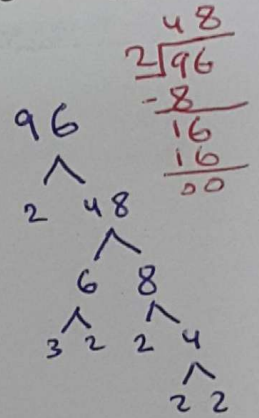 48
2 96
- 8
16
16
00
96
2 48
6 8
3 2 2 4
2 2